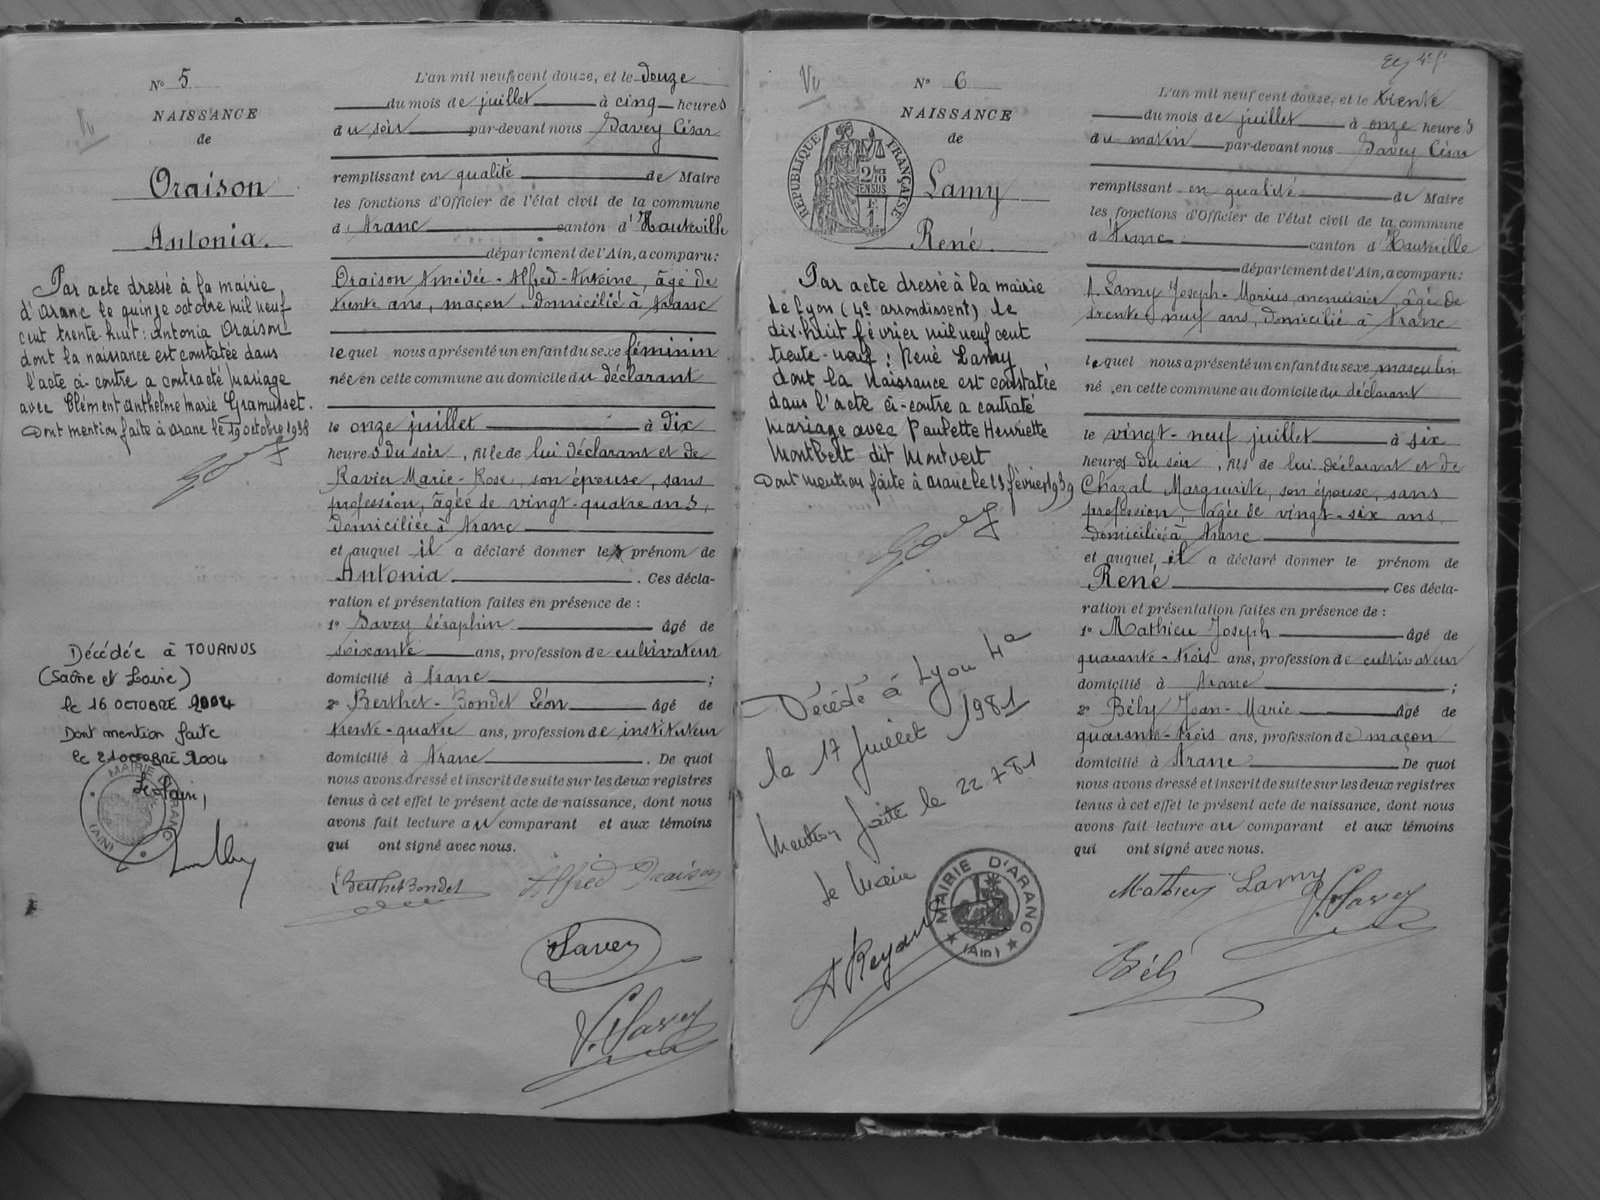 N° 5
NAISSANCE
de
Oraison
Antonia.
Par acte dressé à la mairie
d'Aranc le quinze octobre mil neuf
cent trente huit : Antonia Oraison
dont la naissance est constatée dans
l'acte ci-contre a contracté mariage
avec Clément Anthelme Marie Gramusset.
Dont mention faite à Aranc le 19 octobre 1938
Décédée à TOURNUS
(Saône et Loire)
le 16 OCTOBRE 2004
Dont mention faite
le 21 OCTOBRE 2004
Le Maire,
MAIRIE D'ARANC
(AIN)
L'an mil neuf cent douze, et le douze
du mois de juillet à cinq heures
du soir par-devant nous Savey César
remplissant en qualité de Maire
les fonctions d'Officier de l'état civil de la commune
d'Aranc canton d'Hauteville
département de l'Ain, a comparu :
Oraison Amédée-Alfred-Antoine, âgé de
trente ans, maçon, domicilié à Aranc
lequel nous a présenté un enfant du sexe féminin
née en cette commune au domicile du déclarant
le onze juillet à dix
heures du soir, fille de lui déclarant et de
Ravier Marie-Rose, son épouse, sans
profession, âgée de vingt-quatre ans,
domiciliée à Aranc
et auquel il a déclaré donner le prénom de
Antonia. Ces décla-
ration et présentation faites en présence de :
1° Savey Séraphin âgé de
soixante ans, profession de cultivateur
domicilié à Aranc ;
2° Berthet-Bondet Léon âgé de
trente-quatre ans, profession de instituteur
domicilié à Aranc. De quoi
nous avons dressé et inscrit de suite sur les deux registres
tenus à cet effet le présent acte de naissance, dont nous
avons fait lecture au comparant et aux témoins
qui ont signé avec nous.
LBerthetBondet Alfred Oraison
Savey
C. Savey
Vu
N° 6
NAISSANCE
de
RÉPUBLIQUE FRANÇAISE
2/10 EN SUS
Lamy
René.
Par acte dressé à la mairie
de Lyon (4e arrondissent) le
dix-huit février mil neuf cent
trente-neuf : René Lamy
dont la naissance est constatée
dans l'acte ci-contre a contraté
mariage avec Paulette Henriette
Montbelt dit Montvert
Dont mention faite à Aranc le 23 février 1939
Décédé à Lyon 4e
le 17 Juillet 1981
Mention faite le 22.7.81
Le Maire
MAIRIE D'ARANC
(Ain)
L'an mil neuf cent douze, et le trente
du mois de juillet à onze heures
du matin par-devant nous Savey César
remplissant en qualité de Maire
les fonctions d'Officier de l'état civil de la commune
d'Aranc canton d'Hauteville
département de l'Ain, a comparu :
Lamy Joseph-Marius, menuisier, âgé de
trente neuf ans, domicilié à Aranc
lequel nous a présenté un enfant du sexe masculin
né, en cette commune au domicile du déclarant
le vingt-neuf juillet à six
heures du soir, fils de lui déclarant et de
Chazal Marguerite, son épouse, sans
profession âgée de vingt-six ans,
domiciliée à Aranc
et auquel il a déclaré donner le prénom de
René. Ces décla-
ration et présentation faites en présence de :
1° Mathieu Joseph âgé de
quarante-trois ans, profession de cultivateur
domicilié à Aranc ;
2° Bély Jean-Marie âgé de
quarante-trois ans, profession de maçon
domicilié à Aranc. De quoi
nous avons dressé et inscrit de suite sur les deux registres
tenus à cet effet le présent acte de naissance, dont nous
avons fait lecture au comparant et aux témoins
qui ont signé avec nous.
Mathieu Lamy C. Savey
Bély